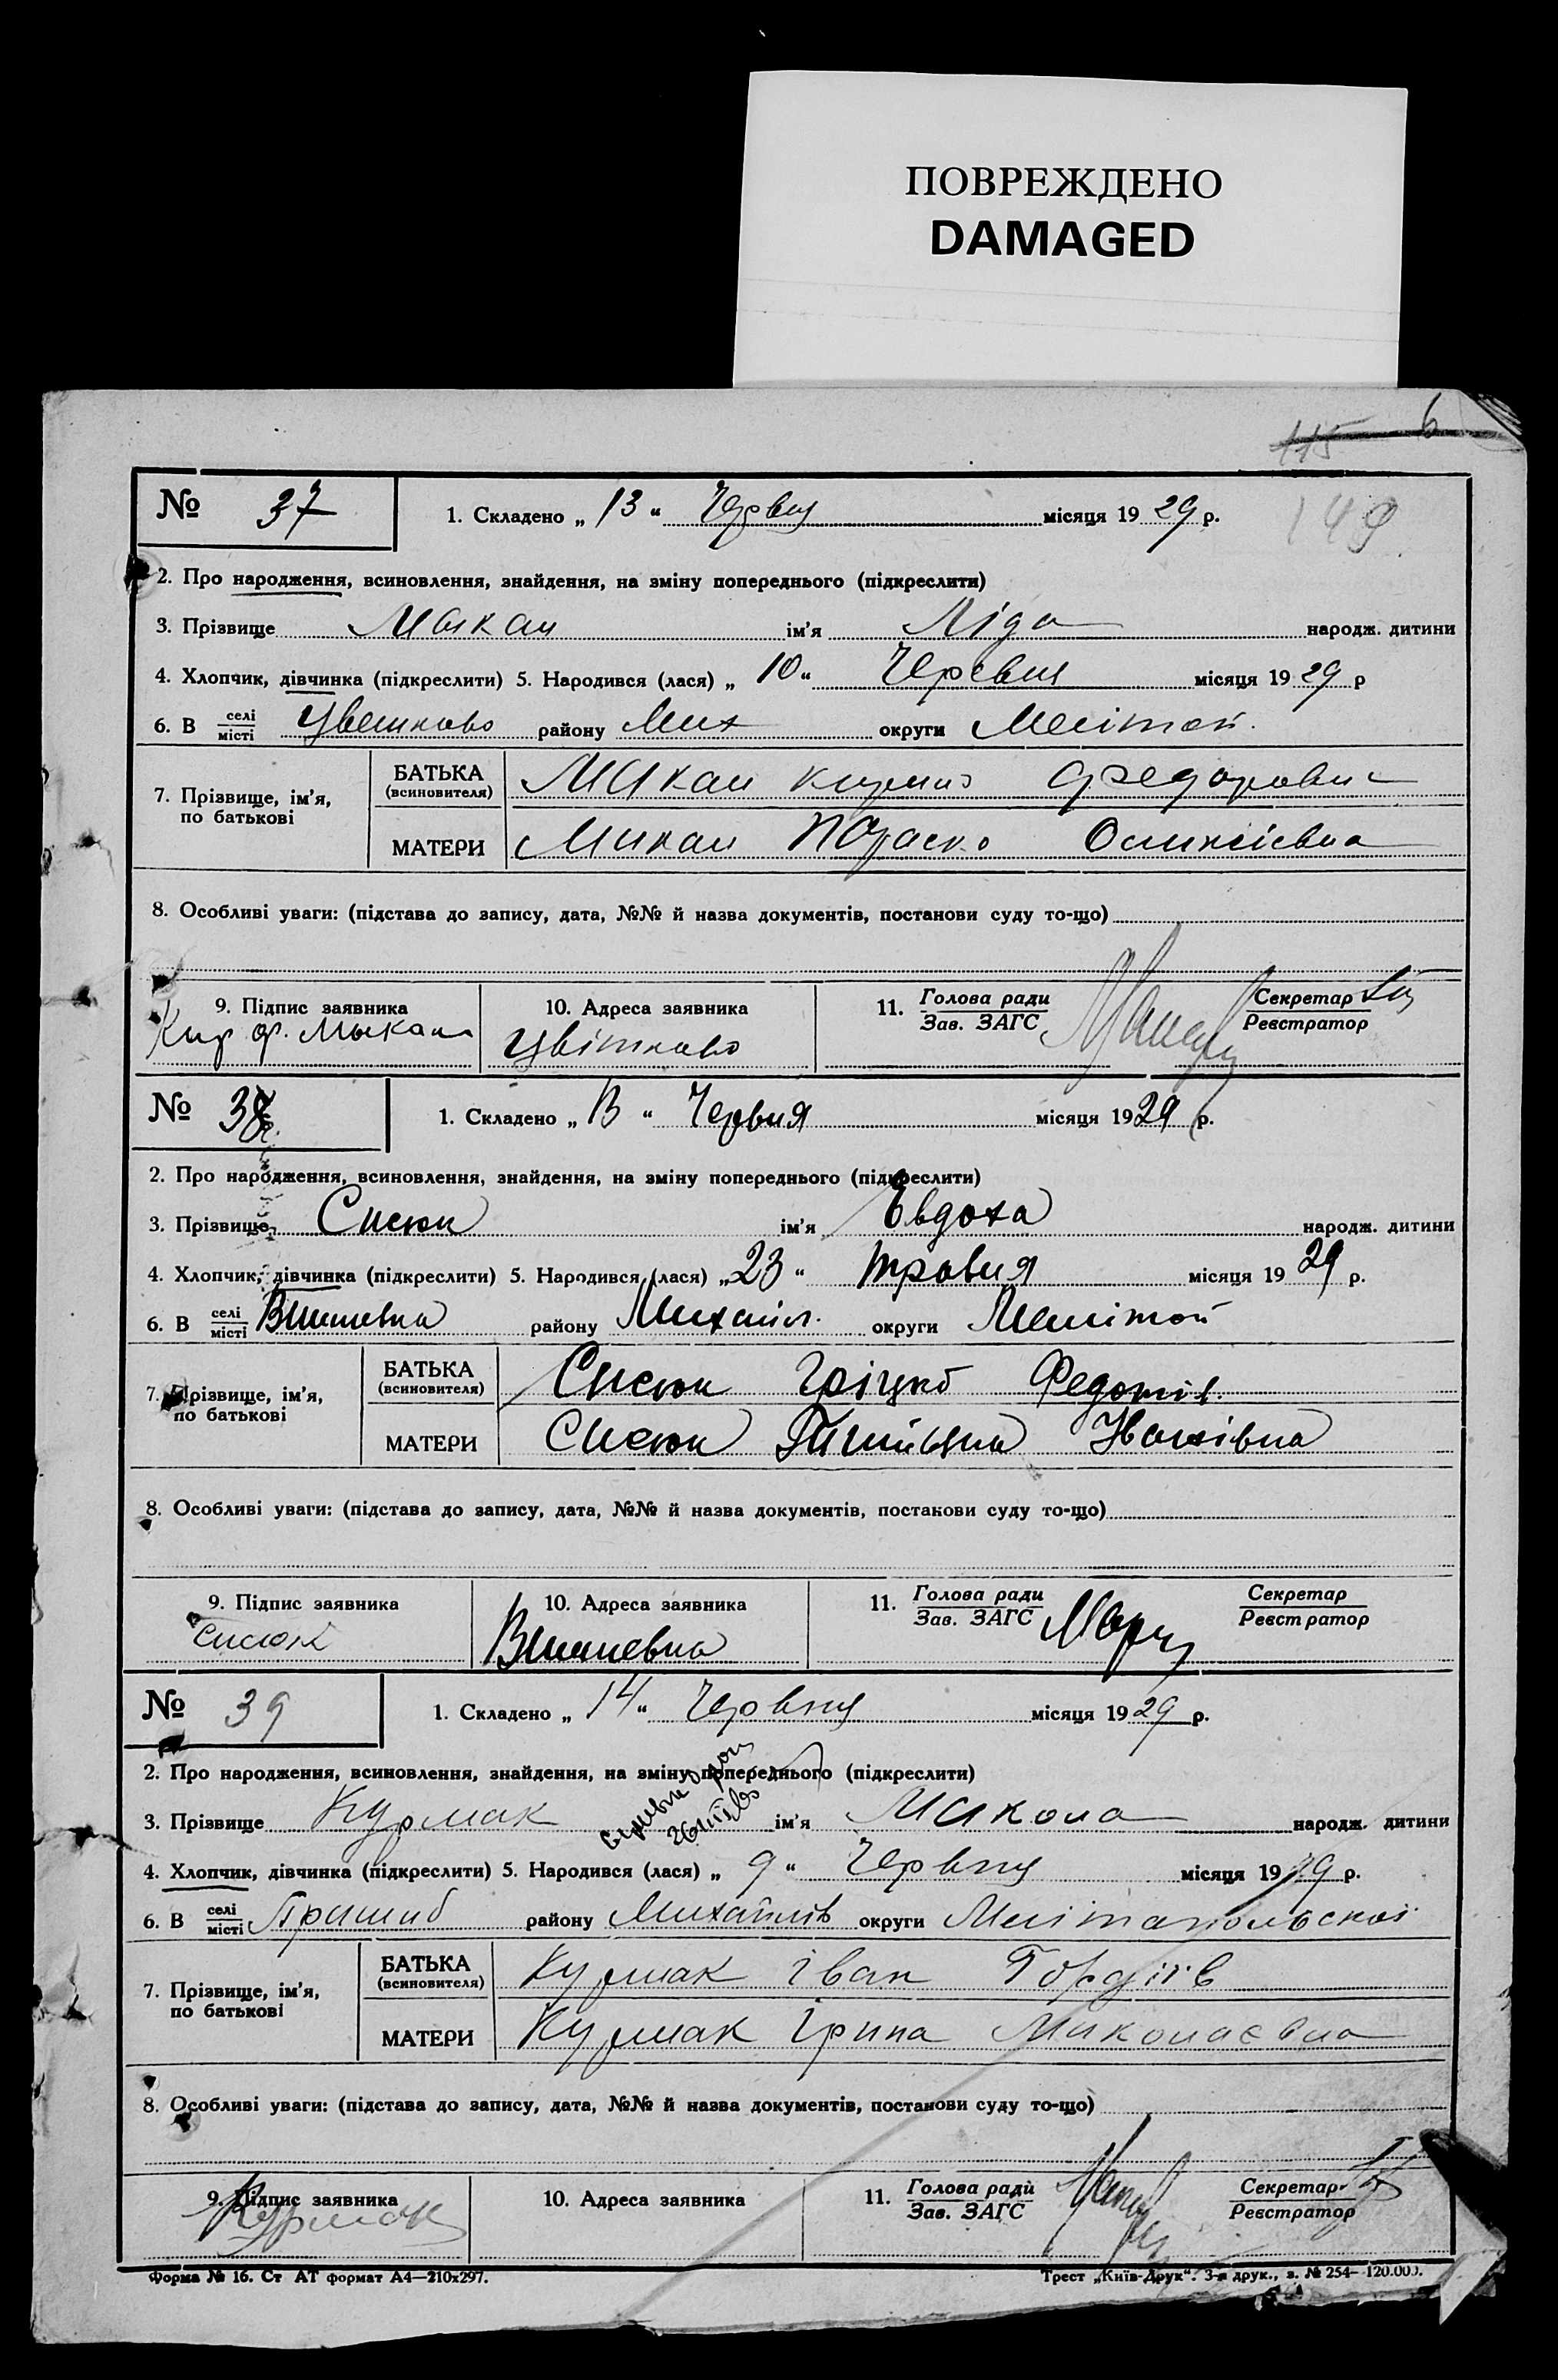 ПОВРЕЖДЕНО
DAMAGED
115 6
149
№ 37 1. Складено „ 13 “ Червня місяця 19 29 р.
2. Про народження, всиновлення, знайдення, на зміну попереднього (підкреслити)
3. Прізвище Микал ім'я Ліда народж. дитини
4. Хлопчик, дівчинка (підкреслити) 5. Народився (лася) „ 10 “ Червня місяця 19 29 р
6. В селі місті Цвітково району Мих округи Меліток.
7. Прізвище, ім'я, по батькові
БАТЬКА (всиновителя) Микал Кирило Федорович
МАТЕРИ Микал Параско
8. Особливі уваги: (підстава до запису, дата, №№ й назва документів, постанови суду то-що)
9. Підпис заявника 10. Адреса заявника 11. Голова ради Зав. ЗАГС Секретар Реєстратор
Кир Ф. Мыкал Цвітково
№ 38 1. Складено „ 13 “ Червня місяця 19 29 р.
2. Про народження, всиновлення, знайдення, на зміну попереднього (підкреслити)
3. Прізвище Сисюк ім'я Євдоха народж. дитини
4. Хлопчик, дівчинка (підкреслити) 5. Народився (лася) „ 23 “ травня місяця 19 29 р.
6. В селі місті Вишневка району Михайл. округи Меліто
7. Прізвище, ім'я, по батькові
БАТЬКА (всиновителя) Сисюк Гріцко Федотів
МАТЕРИ Сисюк Іванівна
8. Особливі уваги: (підстава до запису, дата, №№ й назва документів, постанови суду то-що)
9. Підпис заявника 10. Адреса заявника 11. Голова ради Зав. ЗАГС Секретар Реєстратор
Сисюк Вишневка
№ 39 1. Складено „ 14 “ Червня місяця 19 29 р.
2. Про народження, всиновлення, знайдення, на зміну попереднього (підкреслити)
3. Прізвище Курмак ім'я Микола народж. дитини
4. Хлопчик, дівчинка (підкреслити) 5. Народився (лася) „ 9 “ Червня місяця 19 29 р.
6. В селі місті Пришиб району Михайлів округи Мелітопольскої
7. Прізвище, ім'я, по батькові
БАТЬКА (всиновителя) Курмак Іван Гордіїв
МАТЕРИ Курмак Ірина Миколаєвна
8. Особливі уваги: (підстава до запису, дата, №№ й назва документів, постанови суду то-що)
9. Підпис заявника 10. Адреса заявника 11. Голова ради Зав. ЗАГС Секретар Реєстратор
Курмак
Форма № 16. Ст АТ формат А4—210х297. Трест „Київ-Друк“. 3-я друк., з. № 254— 120.000.